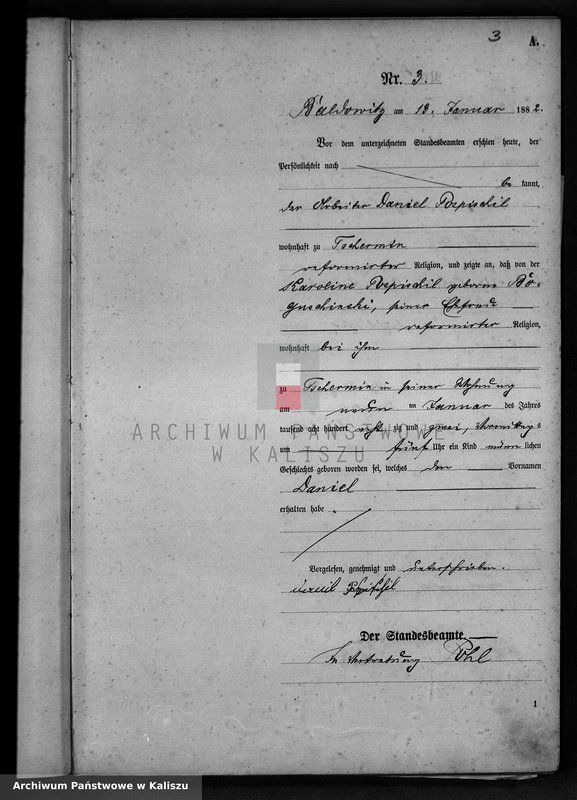 3
A.
Nr. 3.
Baldowitz am 13. Januar 1882.
Vor dem unterzeichneten Standesbeamten erschien heute, der
Persönlichkeit nach
be kannt,
der Arbeiter Daniel Pospischil
wohnhaft zu Tschermin
reformirter Religion, und zeigte an, daß von der
Karoline Pospischil geborne Bo-
guschinski, seiner Ehefrau
reformirter Religion,
wohnhaft bei ihm
zu Tschermin in seiner Wohnung
am neun ten Januar des Jahres
tausend acht hundert acht zig und zwei, Vormittags
um fünf Uhr ein Kind männ lichen
Geschlechts geboren worden sei, welches den Vornamen
Daniel
erhalten habe.
Vorgelesen, genehmigt und unterschrieben.
Daniel Pospischil
Der Standesbeamte.
In Vertretung Pohl
1
ARCHIWUM PAŃSTWOWE
W KALISZU
Archiwum Państwowe w Kaliszu